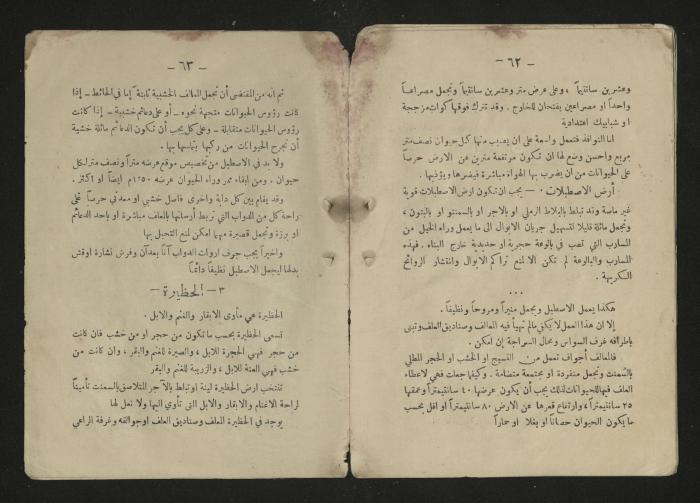 — ٦٢ —
وعشرين سانتيماً ، وعلى عرض متر وعشرين سانتيماً وتجعل مصراعاً
واحداً او مصراعين يفتحان للخارج . وقد تترك فوقها كوات مزججة
او شبابيك اعتيادية
اما النوافذ فتعمل واسعة على ان يصيب منها كل حيوان نصف متر
مربع واحسن وضع لها ان تكون مرتفعة مترين عن الارض حرصاً
على الحيوانات من ان يضرب بها الهواء مباشرة فيضرها ويؤذيها .
أرض الاصطبلات . — يجب ان تكون ارض الاصطبلات قوية
غير ماصة وقد تبلط بالبلاط الرملي او بالاجر او بالسمنتو او بالبتون ،
وتجعل مائلة قليلا لتسهيل جريان الابوال الى ما يعمل وراء الخيل من
المسارب التي تصب في بالوعة حجرية او حديدية خارج البناء . فهذه
المسارب والبالوعة لم تكن الا لمنع تراكم الابوال وانتشار الروائح
الكريهة .
...
هكذا يعمل الاصطبل ويجعل منيراً ومروحاً ونظيفاً .
إلا ان هذا العمل لا يكفي مالم تهيأ فيه المعالف وصناديق العلف وتبنى
باطرافه غرف السواس ومحال السراجة إن امكن .
فالمعالف أجواف تعمل من النسيج او الخشب او الحجر المطلي
بالسمنت وتجعل منفردة او مجتمعة متضامة . وكيفما جعلت فهي لاعطاء
العلف فيها للحيوانات لذلك يجب أن يكون عرضها ٤٠ سانتيمتراً وعمقها
٢٥ سانتيمتراً ، وارتفاع قعرها عن الارض ٨٠ سانتيمتراً او اقل بحسب
ما يكون الحيوان حصاناً او بغلا او حماراً
— ٦٣ —
ثم انه من المقتضى أن تجعل المعالف الخشبية ثابتة إما في الحائط – إذا
كانت رؤوس الحيوانات متجهة نحوه – أو على دعائم خشبية – إذا كانت
رؤوس الحيوانات متقابلة – وعلى كل يجب أن تكون الدعائم مائلة خشية
أن تجرح الحيوانات من ركبها بتماسها بها .
ولا بد في الاصطبل من تخصيص موقع عرضه متراً ونصف متر لكل
حيوان . ومن ابقاء ممر وراء الحيوان عرضه ١٫٥٠م ايضاً او اكثر .
وقد يقام بين كل دابة واخرى فاصل خشبي او معدني حرصاً على
راحة كل من الدواب التي تربط أرسانها بالمعلف مباشرة او باحد الدعائم
او برزة وتجعل قصيرة مهما امكن لمنع التخبل بها
واخيراً يجب جرف اروات الدواب آناً بعد آن وفرش نشارة اوقش
بدلها ليجعل الاصطبل نظيفاً دائماً
٣ – الحظيرة –
الحظيرة هي مأوى الابقار والغنم والابل .
تسمى الحظيرة بحسب ما تكون من حجر او من خشب فان كانت
من حجر فهي الحجرة للابل ، والصيرة للغنم والبقر ، وان كانت من
خشب فهي العنة للابل ، والزريبة للغنم والبقر
تنتخب ارض الحظيرة لينة او تبلط بالآجر المتلاصق بالسمنت تأميناً
لراحة الاغنام والابقار والابل التي تأوي اليها ولا نعل لها
يوجد في الحظيرة المعلف وصناديق العلف اوجوالقه وغرفة الراعي